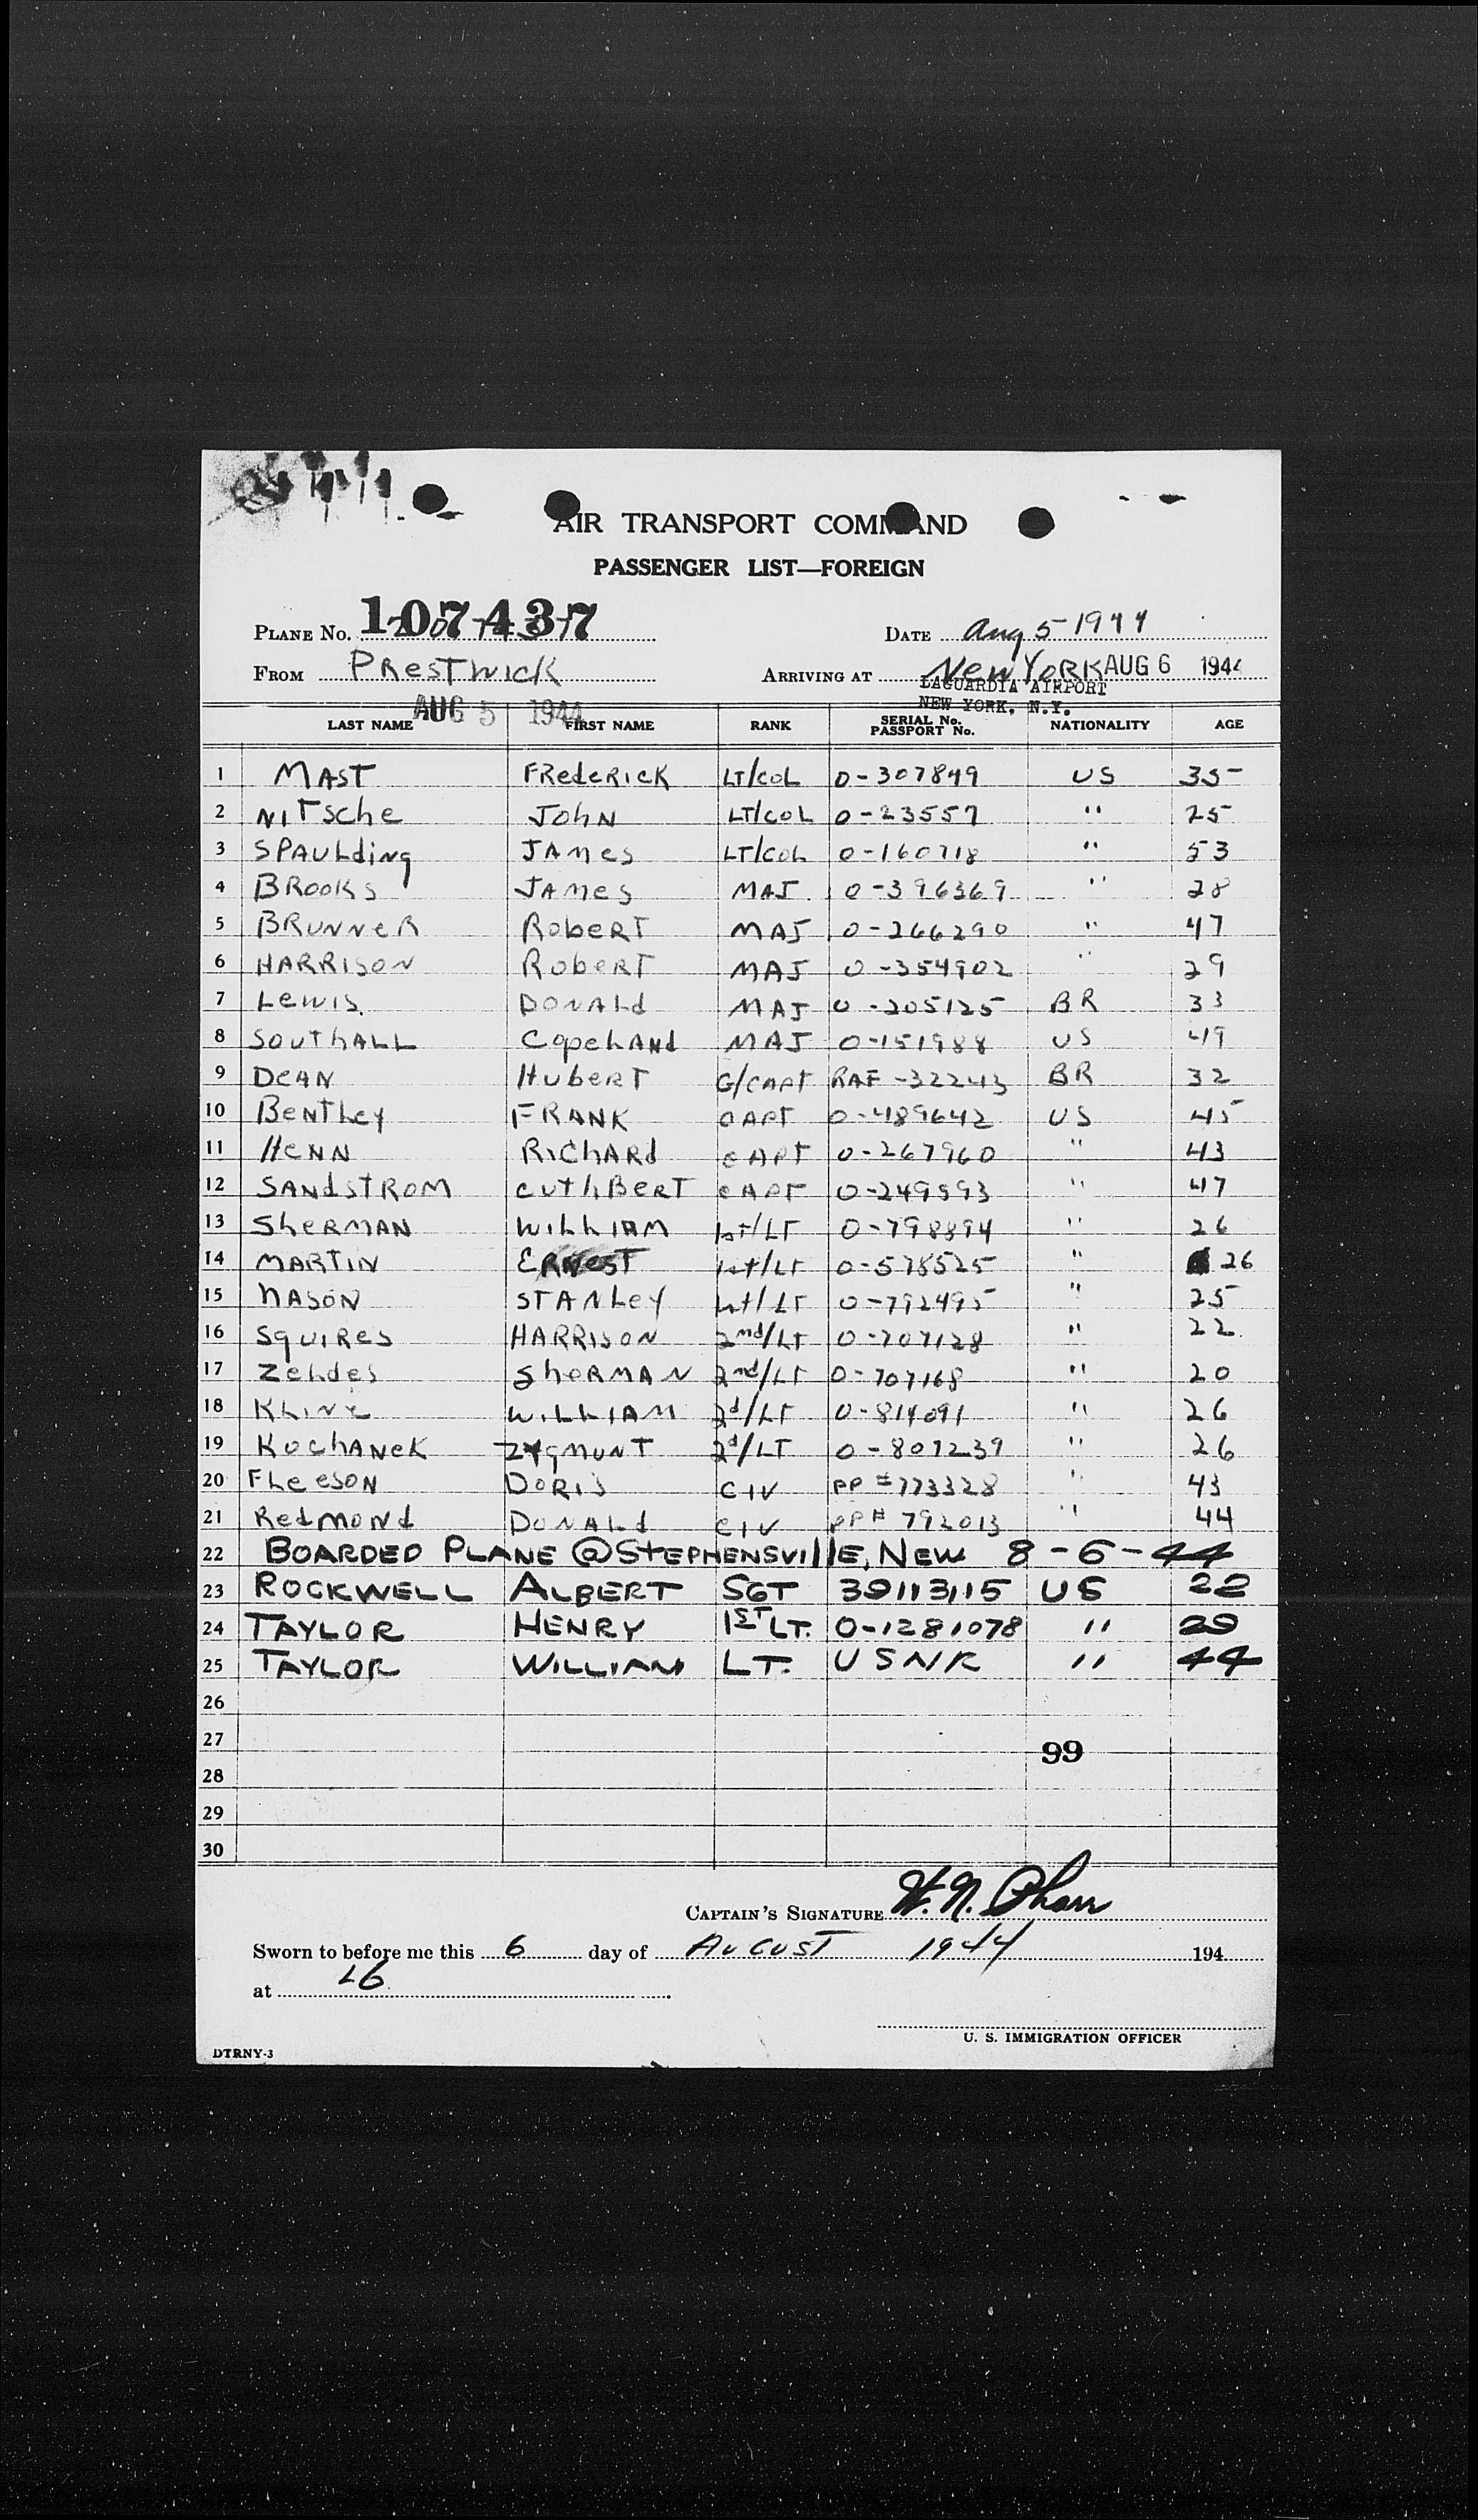 AIR TRANSPORT COMMAND
PASSENGER LIST—FOREIGN
PLANE No. 107437 DATE Aug 5-1944
FROM PRestwick ARRIVING AT New YORK AUG 6 1944
LAGUARDIA AIRPORT
NEW YORK, N.Y.
AUG 5 1944
LAST NAME FIRST NAME RANK SERIAL No. PASSPORT No. NATIONALITY AGE
1 MAST FRedeRICK LT/COL O-307849 US 35
2 NITSche JOHN LT/COL O-23557 " 25
3 SPAULding JAMES LT/COL O-160718 " 53
4 BROOKS JAMES MAJ. O-396369 " 28
5 BRUNNER RobeRT MAJ O-266290 " 47
6 HARRISON RobeRT MAJ O-354902 " 29
7 Lewis. DONALd MAJ O-205125 BR 33
8 SOUThALL CopeLANd MAJ O-151988 US 49
9 DeAN HubeRT G/CAPT RAF-32243 BR 32
10 BenTLey FRANK CAPT O-489642 US 45
11 HeNN RIChARd CAPT O-267960 " 43
12 SANdSTROM CUThBERT CAPT O-249593 " 47
13 SheRMAN WILLIAM 1st/LT O-798894 " 26
14 MARTIN ERNEST 1st/LT O-578525 " 26
15 NASON STANLey 1st/LT O-792495 " 25
16 SquIRes HARRISON 2nd/LT O-707128 " 22
17 ZeLdes SheRMAN 2nd/LT O-707168 " 20
18 KLINE WILLIAM 2d/LT O-814091 " 26
19 KochANeK ZYgMUNT 2d/LT O-807239 " 26
20 FLeeSON DORIS CIV PP #773328 " 43
21 RedMONd DONALd CIV PP# 792013 " 44
22 BOARDED PLANE @ STEPHENSVIllE, NEW 8-6-44
23 ROCKWELL ALBERT SGT 39113115 US 22
24 TAYLOR HENRY 1ST LT. O-1281078 " 29
25 TAYLOR WILLIAM LT. USNR " 44
26
27
99
28
29
30
CAPTAIN'S SIGNATURE W. N. Pharr
Sworn to before me this 6 day of AUGUST 1944 194
at LG
U. S. IMMIGRATION OFFICER
DTRNY-3